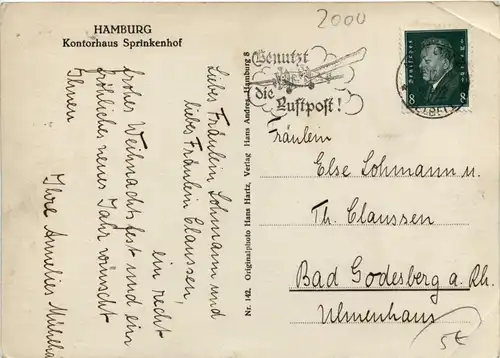 HAMBURG
Kontorhaus Sprinkenhof
2000
Benutzt
die Luftpost!
Deutsches Reich
8 8
Liebes Fräulein Lohmann und
liebes Fräulein Claussen,
ein recht
frohes Weihnachtsfest und ein
fröhliches neues Jahr wünscht
Ihnen
Ihre Annelies
Nr. 142. Originalphoto Hans Hartz, Verlag Hans Andres, Hamburg 8
Fräulein
Else Lohmann u.
Th. Claussen
Bad Godesberg a. Rh.
Ulmenhaus
5€